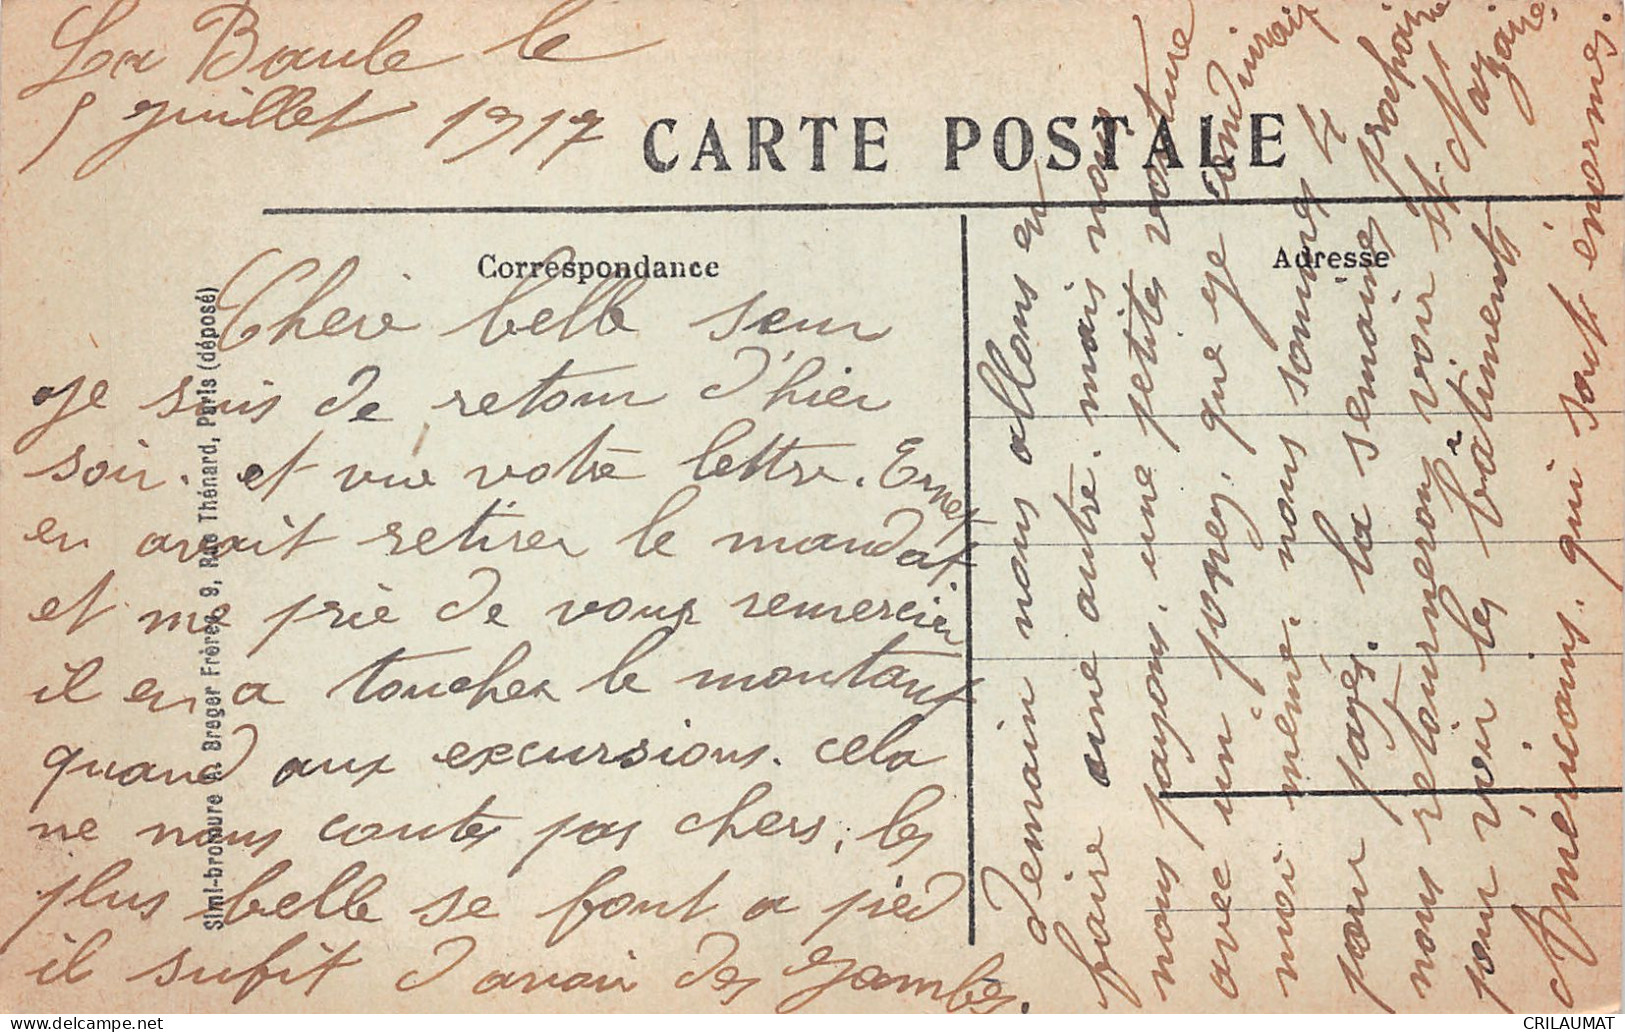 La Baule le
5 juillet 1917
CARTE POSTALE
Correspondance
Adresse
Simi-bromure A. Breger Frères, 9, Rue Thénard, Paris (déposé)
Chere belle seur
je suis de retour d'hier
soir. et vue votre lettre. Ernest
en avait retirer le mandat
et me prie de vous remercier
il en a toucher le montant
quand aux excursions. cela
ne nous coute pas chers, les
plus belle se font a pied
il sufit d'avoir des jambes.
demain nous allons en
faire une autre. mais nous
nous payons. une petites voiture
avec un poney. que je conduirais
moi même. nous sommes 4
pour payes. la semaine prochaine
nous retournerons voir St. Nazaire.
pour voir les bâtiments
Américains. qui sont énormes.
CRILAUMAT